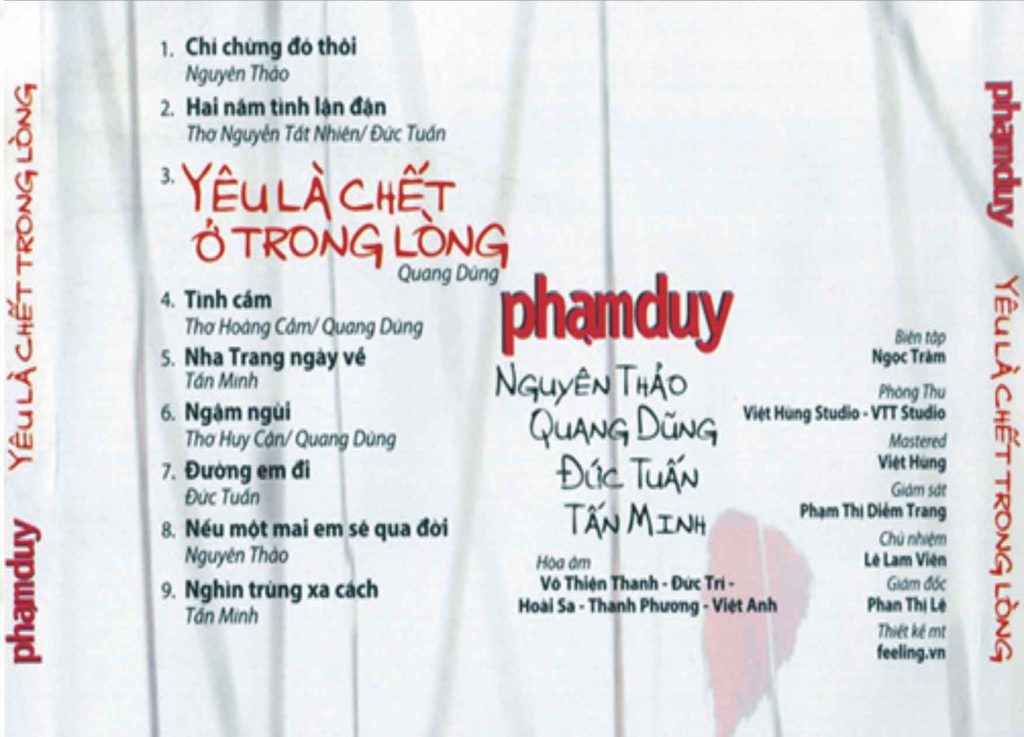 YÊU LÀ CHẾT TRONG LÒNG
phạmduy
1. Chỉ chừng đó thôi
Nguyên Thảo
2. Hai năm tình lận đận
Thơ Nguyễn Tất Nhiên/ Đức Tuấn
3. YÊU LÀ CHẾT
Ở TRONG LÒNG
Quang Dũng
4. Tình cầm
Thơ Hoàng Cầm/ Quang Dũng
5. Nha Trang ngày về
Tấn Minh
6. Ngậm ngùi
Thơ Huy Cận/ Quang Dũng
7. Đường em đi
Đức Tuấn
8. Nếu một mai em sẽ qua đời
Nguyên Thảo
9. Nghìn trùng xa cách
Tấn Minh
phạmduy
NGUYÊN THẢO
QUANG DŨNG
ĐỨC TUẤN
TẤN MINH
Hòa âm
Võ Thiện Thanh - Đức Trí -
Hoài Sa - Thanh Phương - Việt Anh
Biên tập
Ngọc Trâm
Phòng Thu
Việt Hùng Studio - VTT Studio
Mastered
Việt Hùng
Giám sát
Phạm Thị Diễm Trang
Chủ nhiệm
Lê Lam Viên
Giám đốc
Phan Thị Lệ
Thiết kế mt
feeling.vn
phạmduy
YÊU LÀ CHẾT TRONG LÒNG